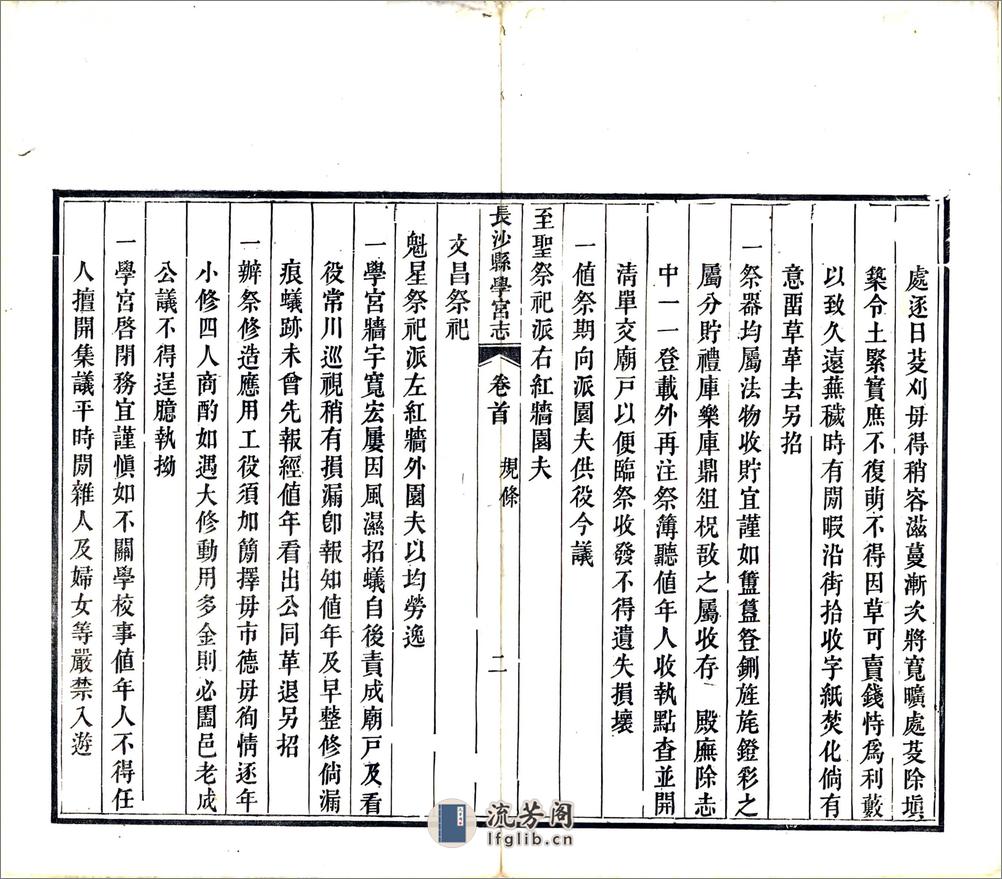 處逐日芟刈毋得稍容滋蔓漸次將寬曠處芟除塡
築令土緊實庶不復萌不得因草可賣錢恃爲利藪
以致久遠蕪穢時有閒暇沿街拾收字紙焚化倘有
意畱草革去另招
一祭器均屬法物收貯宜謹如簠簋登鉶旌旄鐙彩之
屬分貯禮庫樂庫鼎俎柷敔之屬收存　殿廡除志
中一一登載外再注祭簿聽値年人收執點查並開
淸單交廟戸以便臨祭收發不得遺失損壞
一値祭期向派園夫供役今議
至聖祭祀派右紅牆園夫
長沙縣學宮志
卷首
規條
二
文昌祭祀
魁星祭祀派左紅牆外園夫以均勞逸
一學宮牆宇寬宏屢因風濕招蟻自後責成廟戸及看
役常川巡視稍有損漏卽報知値年及早整修倘漏
痕蟻跡未曾先報經値年看出公同革退另招
一辦祭修造應用工役須加簡擇毋市德毋徇情逐年
小修四人商酌如遇大修動用多金則必闔邑老成
公議不得逞臆執拗
一學宮啓閉務宜謹愼如不關學校事値年人不得任
人擅開集議平時閒雜人及婦女等嚴禁入遊
流芳阁
lfglib.cn